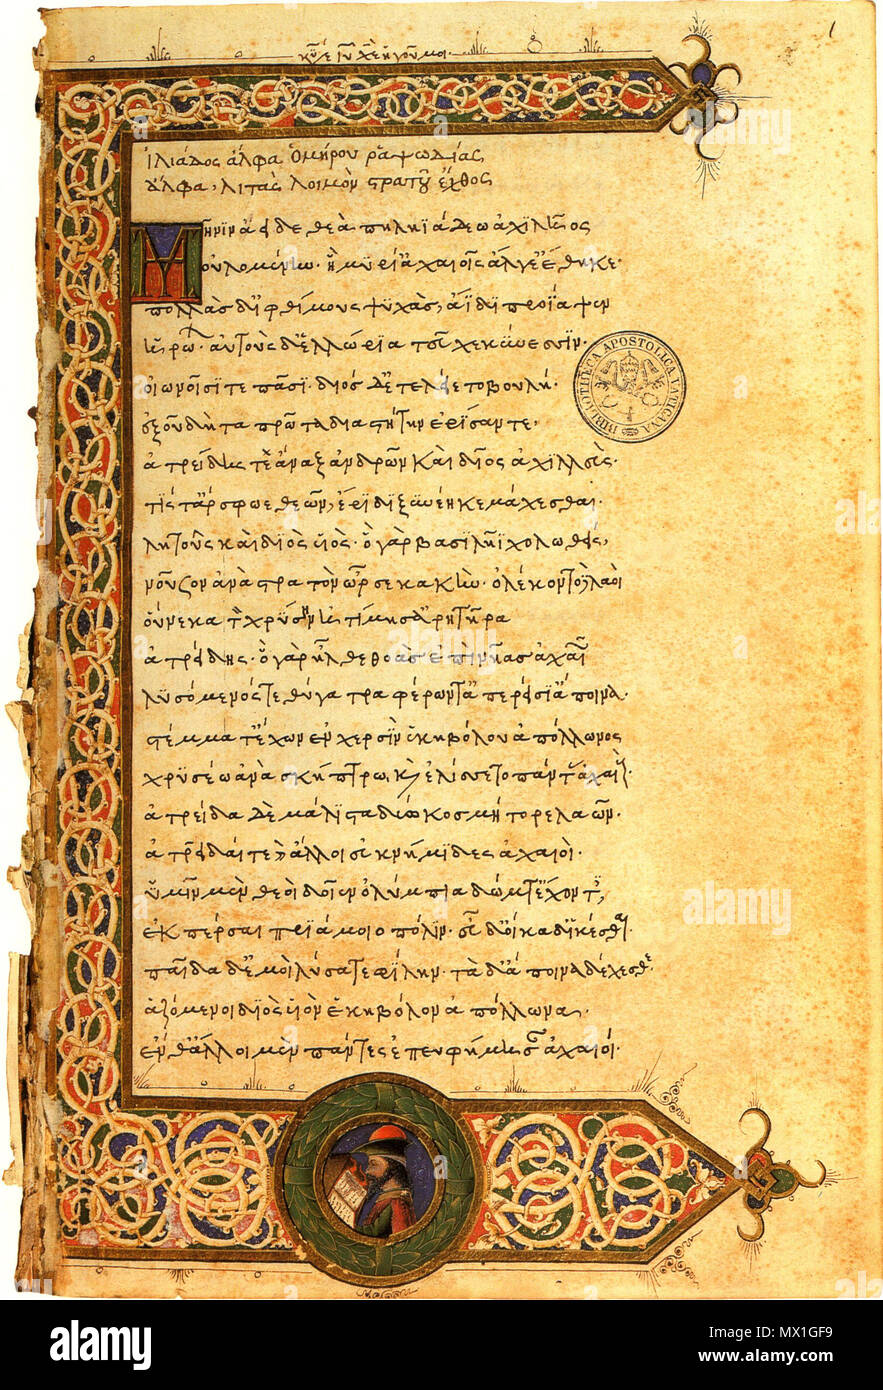 1
Ἰλιάδος ἄλφα Ὁμήρου ῥαψωδίας
Ἄλφα, λιτὰς λοιμὸν στρατοῦ ἔχθος
Μῆνιν ἄειδε θεὰ πηληϊάδεω ἀχιλῆος
οὐλομένην· ἣ μυρί ἀχαιοῖς ἄλγε ἔθηκε·
πολλὰς δ ἰφθίμους ψυχὰς, ἄϊδι προΐαψεν
ἡρώ· αὐτοὺς δὲ ἑλλώρια τεῦχε κύνεσσιν·
οἰωνοῖσί τε πᾶσι· διός δ ἐτελείετο βουλή·
ἐξ οὗ δὴ τα πρῶτα διαστήτην ἐρίσαντε,
ἀτρείδης τὲ ἄναξ ἀνδρῶν καὶ δῖος ἀχιλλεὺς·
τίς τ ἄρ σφωε θεῶν, ἔριδι ξυνέηκε μάχεσθαι·
λητοῦς καὶ διὸς υἱὸς· ὁ γὰρ βασιλῆϊ χολωθείς,
νοῦσον ἀνὰ στρατὸν ὦρσε κακὴν· ὀλέκοντο λαοὶ
οὕνεκα τὸν χρύσην ἠτίμησ ἀρητῆρα
ἀτρείδης· ὁ γὰρ ἦλθε θοὰς ἐπὶ νῆας ἀχαιῶν
λυσόμενός τε θύγατρα φέρων τ ἀπερείσι ἄποινα·
στέμμα τ ἔχων ἐν χερσὶν ἑκηβόλου ἀπόλλωνος
χρυσέω ἀνὰ σκήπτρω, καὶ ἐλίσσετο πάντας ἀχαιούς·
ἀτρείδα δὲ μάλιστα δύω κοσμήτορε λαῶν·
ἀτρείδαι τε καὶ ἄλλοι ἐϋκνήμιδες ἀχαιοὶ·
ὑμῖν μὲν θεοὶ δοῖεν ὀλύμπια δώματ ἔχοντες,
ἐκπέρσαι πριάμοιο πόλιν· εὖ δ οἴκαδ ἱκέσθαι·
παῖδα δ ἐμοὶ λύσατε φίλην· τὰ δ ἄποινα δέχεσθε·
ἁζόμενοι διὸς υἱὸν ἑκηβόλον ἀπόλλωνα·
ἔνθ ἄλλοι μὲν πάντες ἐπευφήμησαν ἀχαιοί·
BIBLIOTHECA APOSTOLICA VATICANA
alamy
alamy
Image ID: MX1GF9
www.alamy.com